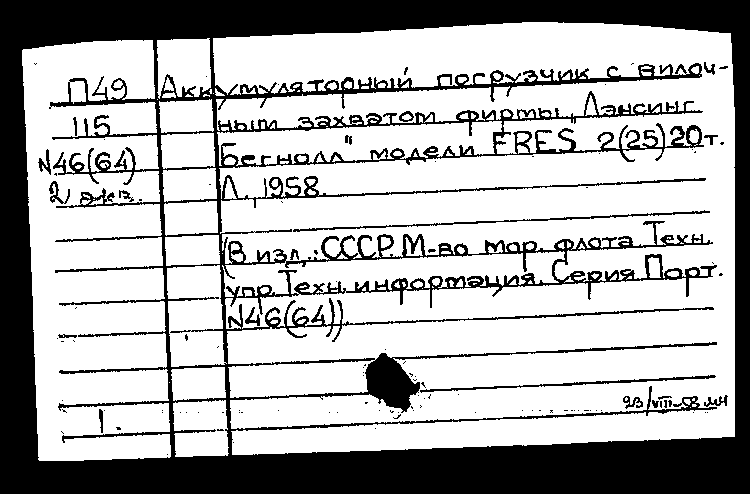 П49 Аккумуляторный погрузчик с вилоч-
115 ным захватом фирмы „Лэнсинг
N46(64) Бегнолл" модели FRES 2(25)20т.
2 экз. Л., 1958.
(В изд.: СССР. М-во мор. флота Техн.
упр. Техн. информация. Серия Порт.
N46(64)).
1.
23/VIII-58 мн